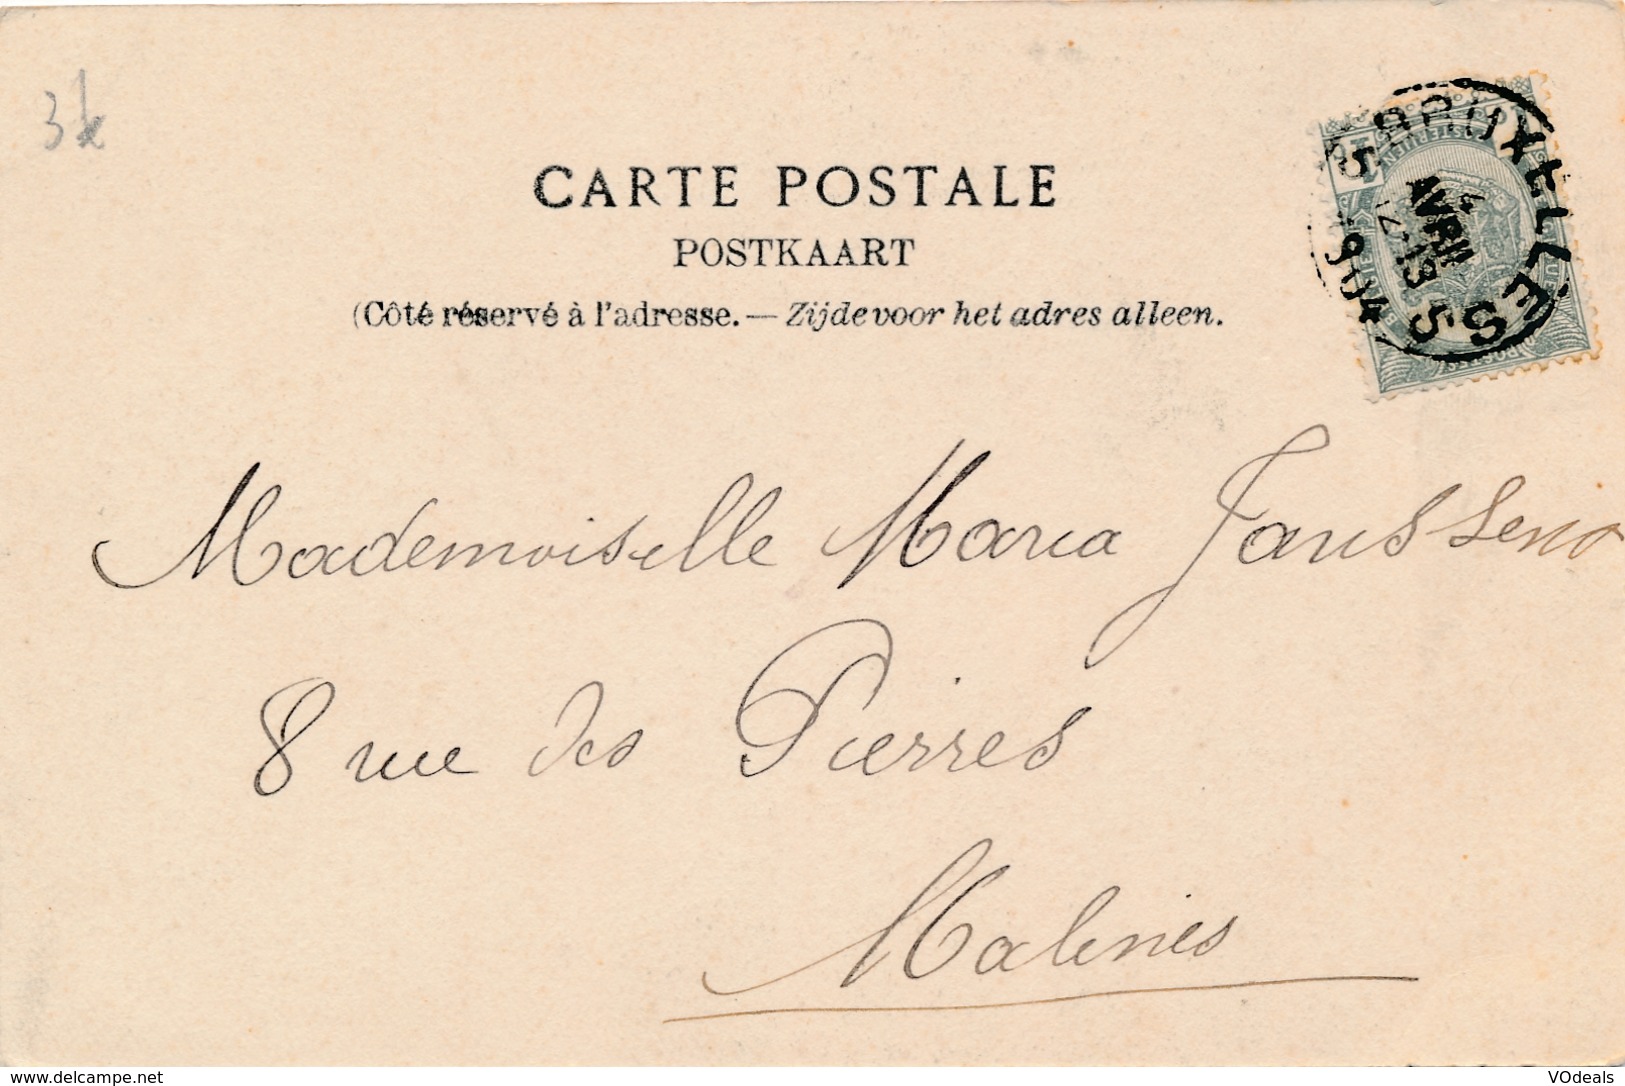 3
CARTE POSTALE
POSTKAART
(Côté réservé à l'adresse. — Zijde voor het adres alleen.
BRUXELLES 5
5
4
AVRIL
12-13
1904
POSTES
Mademoiselle Maria Janssens
8 rue des Pierres
Malines
www.delcampe.net
VOdeals